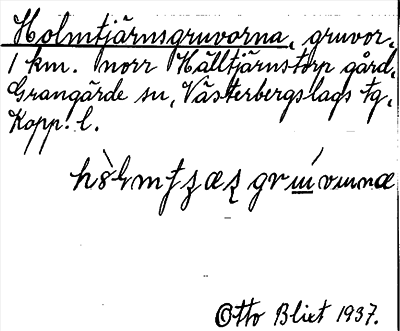 Holmtjärnsgruvorna, gruvor,
1 km. norr Hälltjärnstorp gård,
Grangärde sn, Västerbergslags tg,
Kopp. l.
Otto Blixt 1937.